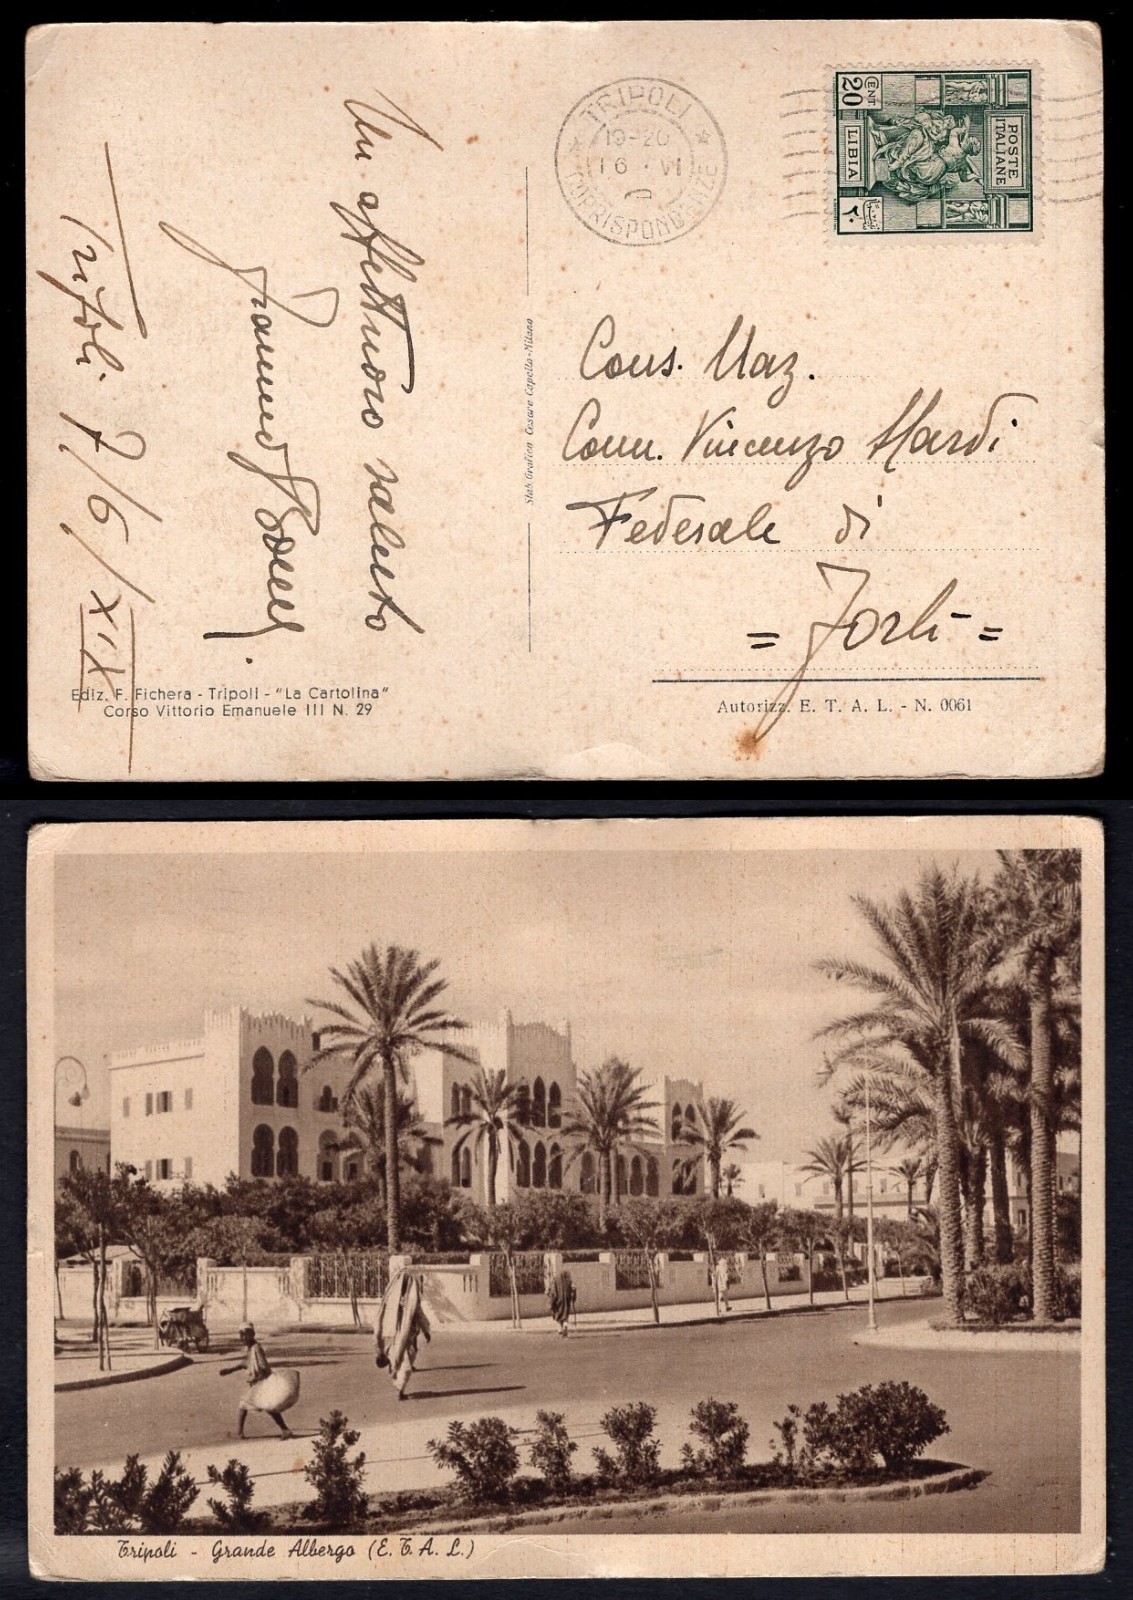 TRIPOLI
19-20
16 · VI
CORRISPONDENZE
CENT 20
LIBIA
POSTE ITALIANE
٢٠
Un affettuoso saluto
Tripoli 7/6/XIX
Cons. Naz.
Comm. Vincenzo Nardi
Federale di
= Forlì =
Stab. Grafico Cesare Capello-Milano
Ediz. F. Fichera - Tripoli - "La Cartolina"
Corso Vittorio Emanuele III N. 29
Autorizz. E. T. A. L. - N. 0061
Tripoli - Grande Albergo (E. T. A. L.)